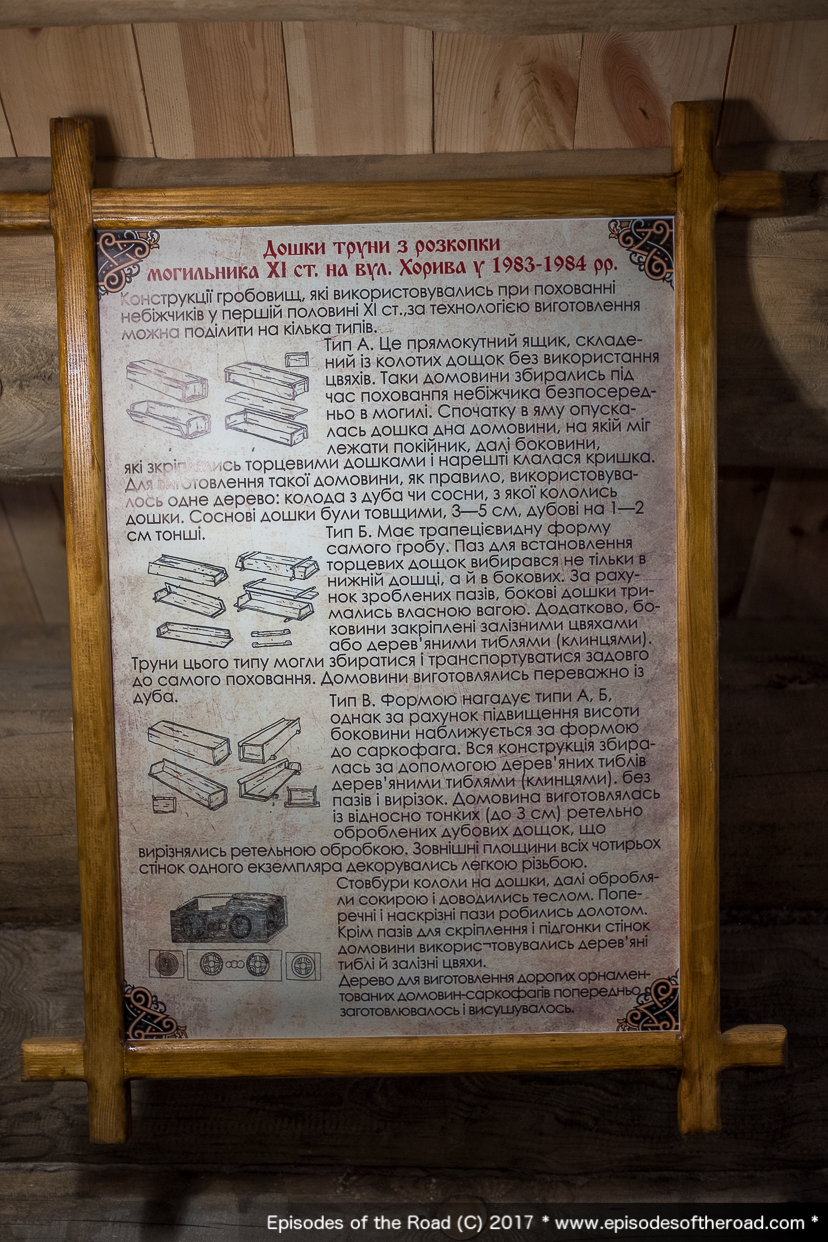 Дошки труни з розкопки
могильника XI ст. на вул. Хорива у 1983-1984 рр.
Конструкції гробовищ, які використовувались при похованні
небіжчиків у першій половині XI ст.,за технологією виготовлення
можна поділити на кілька типів.
Тип А. Це прямокутний ящик, складе-
ний із колотих дощок без використання
цвяхів. Таки домовини збирались під
час похованпя небіжчика безпосеред-
ньо в могилі. Спочатку в яму опуска-
лась дошка дна домовини, на якій міг
лежати покійник, далі боковини,
які торцевими дошками і нарешті клалася кришка.
Для виготовлення такої домовини, як правило, використовува-
лось одне дерево: колода з дуба чи сосни, з якої кололись
дошки. Соснові дошки були товщими, 3—5 см, дубові на 1—2
см тонші.
Тип Б. Має трапецієвидну форму
самого гробу. Паз для встановлення
торцевих дощок вибирався не тільки в
нижній дошці, а й в бокових. За раху-
нок зроблених пазів, бокові дошки три-
мались власною вагою. Додатково, бо-
ковини закріплені залізними цвяхами
або дерев'яними тиблями (клинцями).
Труни цього типу могли збиратися і транспортуватися задовго
до самого поховання. Домовини виготовлялись переважно із
дуба.
Тип В. Формою нагадує типи А, Б,
однак за рахунок підвищення висоти
боковини наближується за формою
до саркофага. Вся конструкція збира-
лась за допомогою дерев'яних тиблів
дерев'яними тиблями (клинцями). без
пазів і вирізок. Домовина виготовлялась
із відносно тонких (до 3 см) ретельно
оброблених дубових дощок, що
вирізнялись ретельною обробкою. Зовнішні площини всіх чотирьох
стінок одного екземпляра декорувались легкою різьбою.
Стовбури кололи на дошки, далі обробля-
ли сокирою і доводились теслом. Попе-
речні і наскрізні пази робились долотом.
Крім пазів для скріплення і підгонки стінок
домовини використовувались дерев'яні
тиблі й залізні цвяхи.
Дерево для виготовлення дорогих орнамен-
тованих домовин-саркофагів попередньо
заготовлювалось і висушувалось.
Episodes of the Road (C) 2017 * www.episodesoftheroad.com *